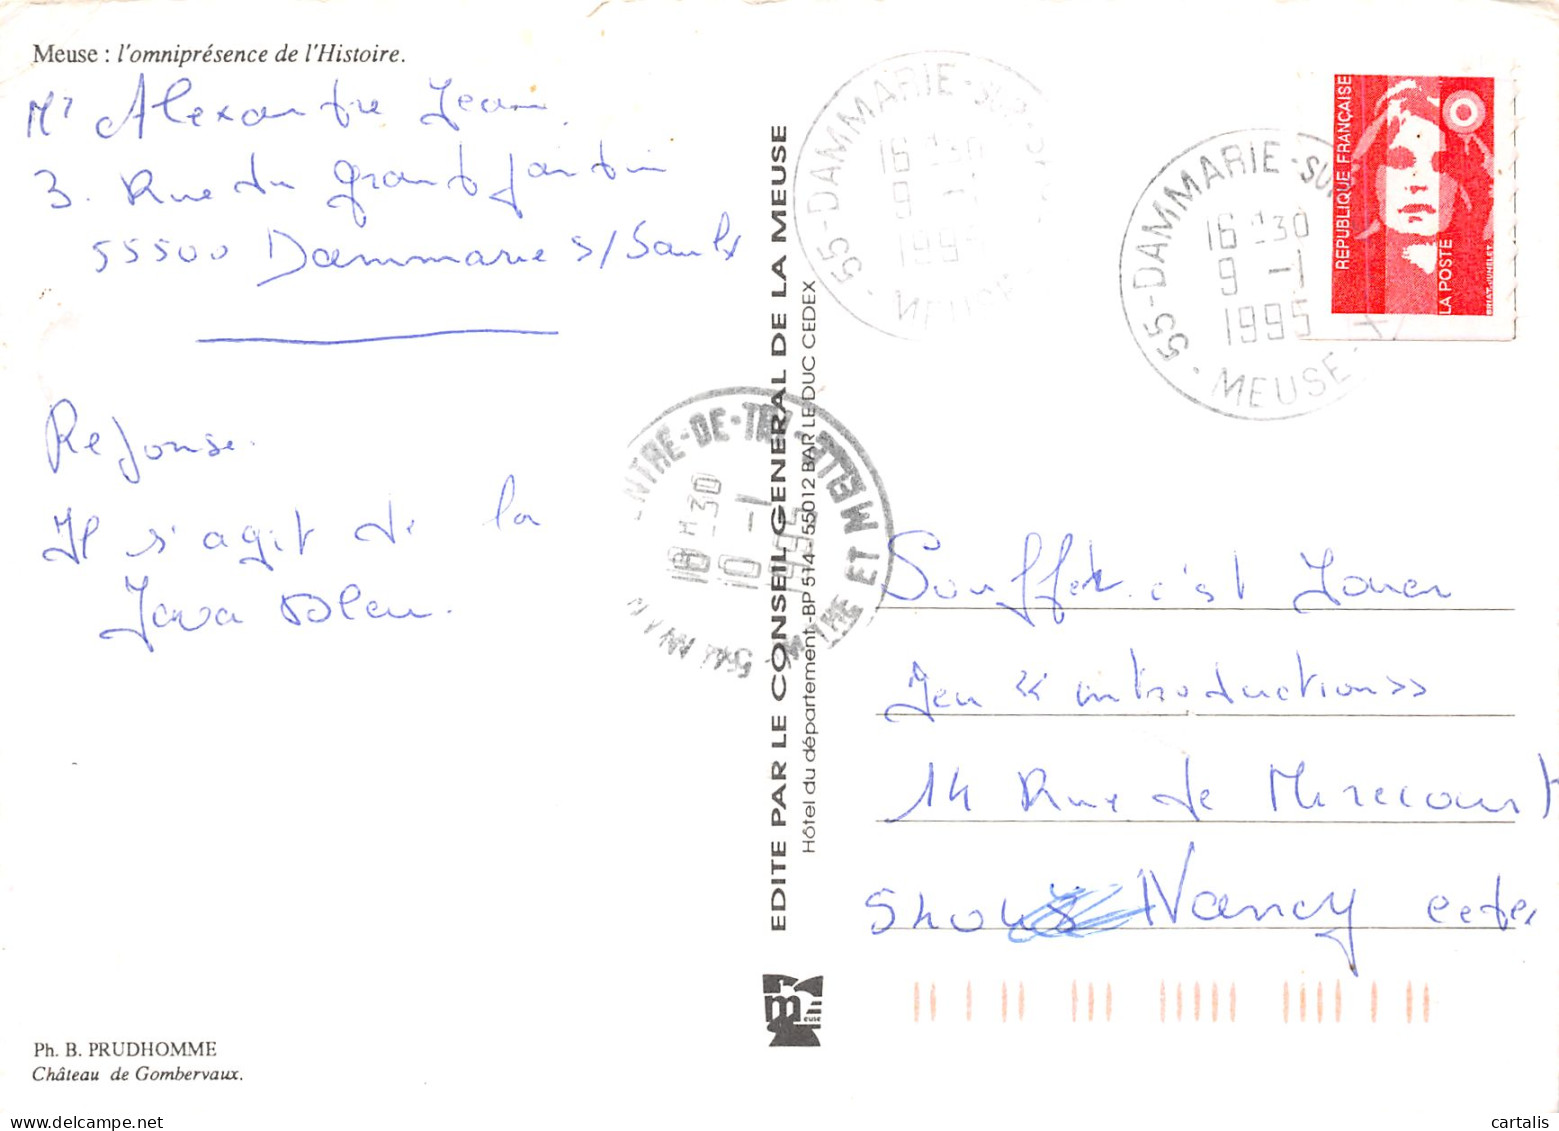 Meuse : l'omniprésence de l'Histoire.
Mr Alexandre Jean
3. Rue du grand Jardin
55500 Dammarie s/Saulx
Reponse.
Il s'agit de la
Java bleu.
Ph. B. PRUDHOMME
Château de Gombervaux.
EDITE PAR LE CONSEIL GENERAL DE LA MEUSE
Hôtel du département - BP 514 - 55012 BAR LE DUC CEDEX
meuse
55-DAMMARIE-SUR-
16 H 30
9 - 1
1995
MEUSE
55-DAMMARIE-SUR
16 H 30
9 - 1
1995
MEUSE
NTRE-DE-TRI
18 H 30
10 - 1
1995
54
ET M
REPUBLIQUE FRANÇAISE
LA POSTE
BRIAT-JUMELET
Soufflez c'est Jouer
Jeu « introduction »
14 Rue de Mirecourt
540 Nancy cedex
cartalis